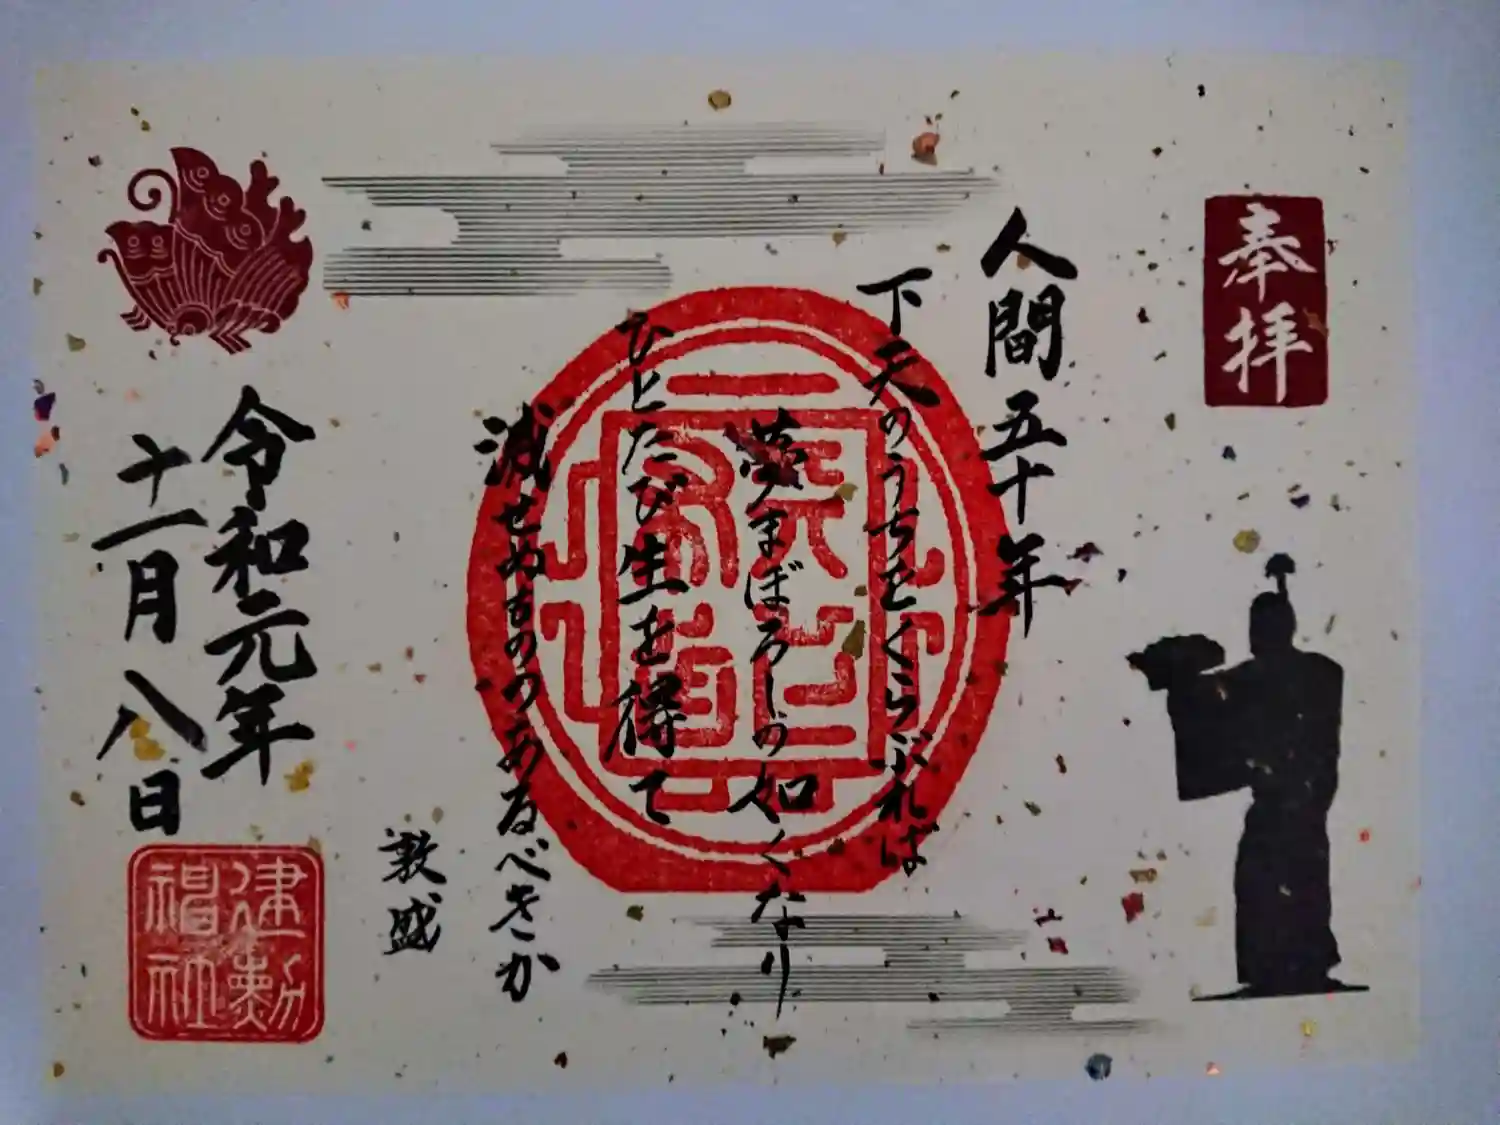 奉拝
人間五十年
下天のうちをくらぶれば
夢まぼろしの如くなり
ひとたび生を得て
滅せぬものゝあるべきか
敦盛
令和元年
十一月八日
建勲
神社